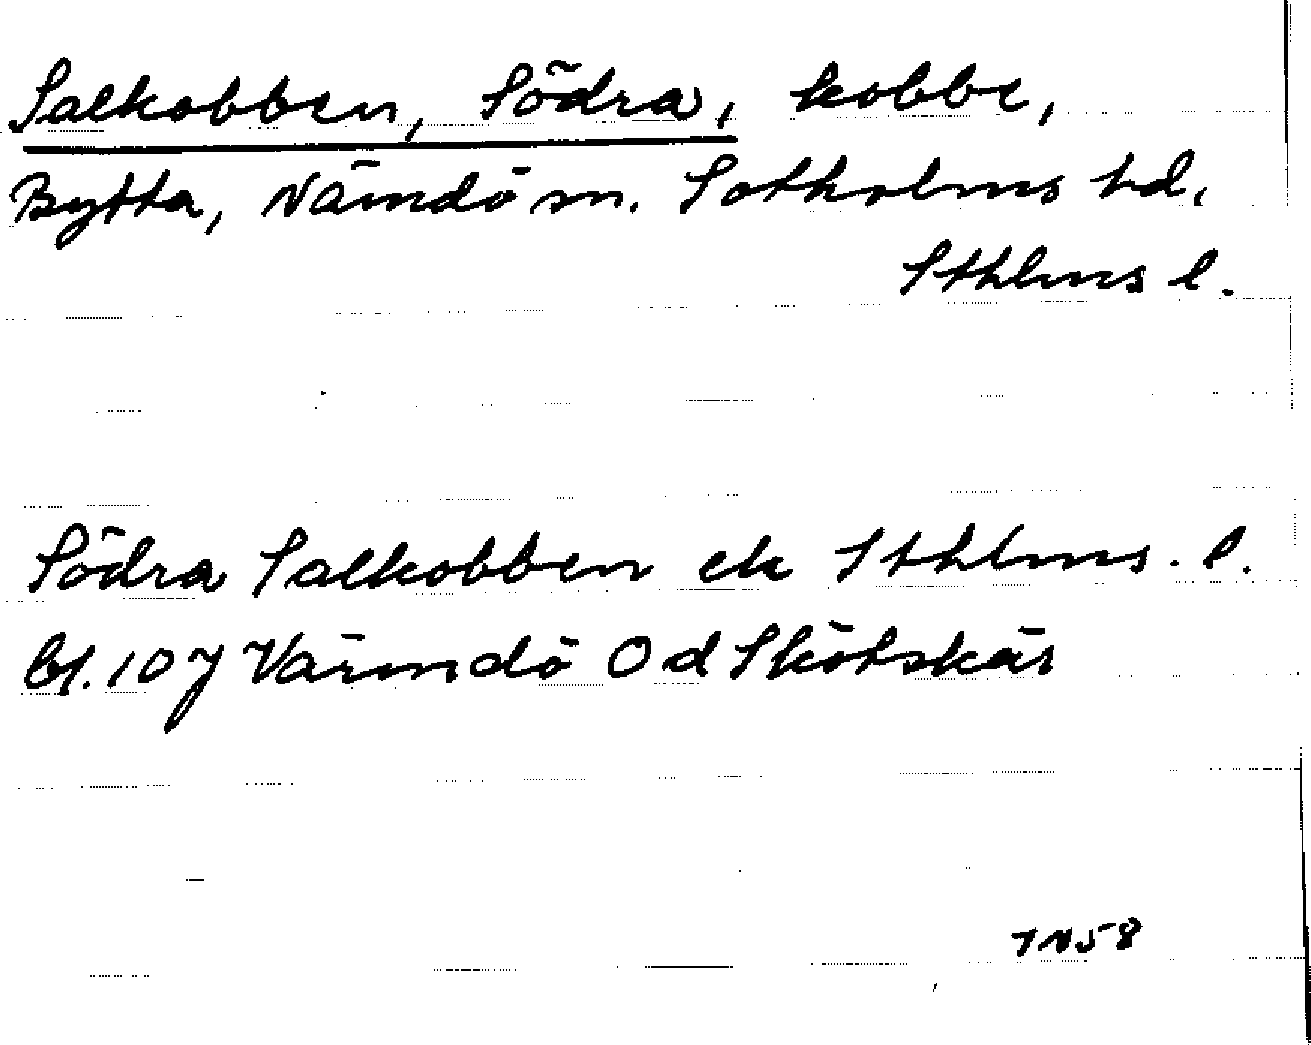 Salkobben, Södra, kobbe,
Bytta, Nämdö sn. Sotholms hd,
Sthlms l.
Södra Salkobben ek Sthlms. l.
bl. 107 Värmdö Od Skötskär
IN58